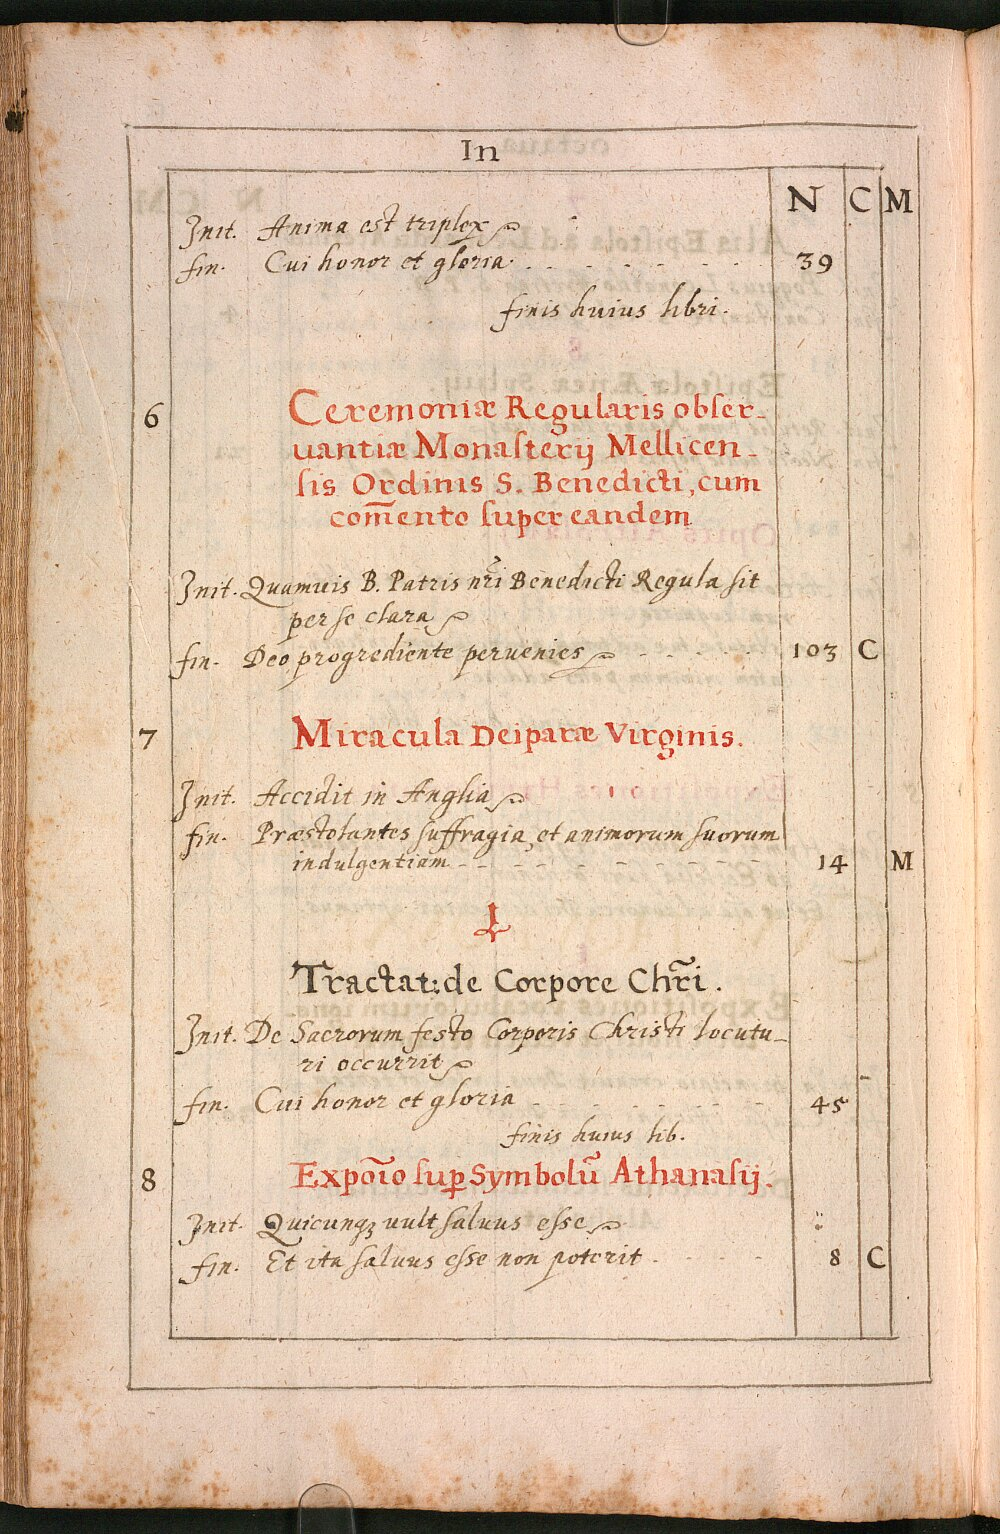 In
N C M
Init. Anima est triplex
fin. Cui honor et gloria. 39
finis huius libri.
6 Ceremoniæ Regularis obser-
uantiæ Monasterij Mellicen-
sis Ordinis S. Benedicti, cum
com̄ento super eandem
Init. Quamuis B. Patris nr̃i Benedicti Regula sit
per se clara
fin. Deo progrediente peruenies 103 C
7 Miracula Deiparæ Virginis.
Init. Accidit in Anglia
fin. Præstolantes suffragia, et animorum suorum
indulgentiam 14 M
Tractat: de Corpore Chr̃i.
Init. De Sacrorum festo Corporis Christi locutu-
ri occurrit
fin. Cui honor et gloria 45
finis huius lib.
8 Expoĩo suꝑ Symbolũ Athanasij.
Init. Quicunqꝫ uult saluus esse
fin. Et ita saluus esse non poterit 8 C